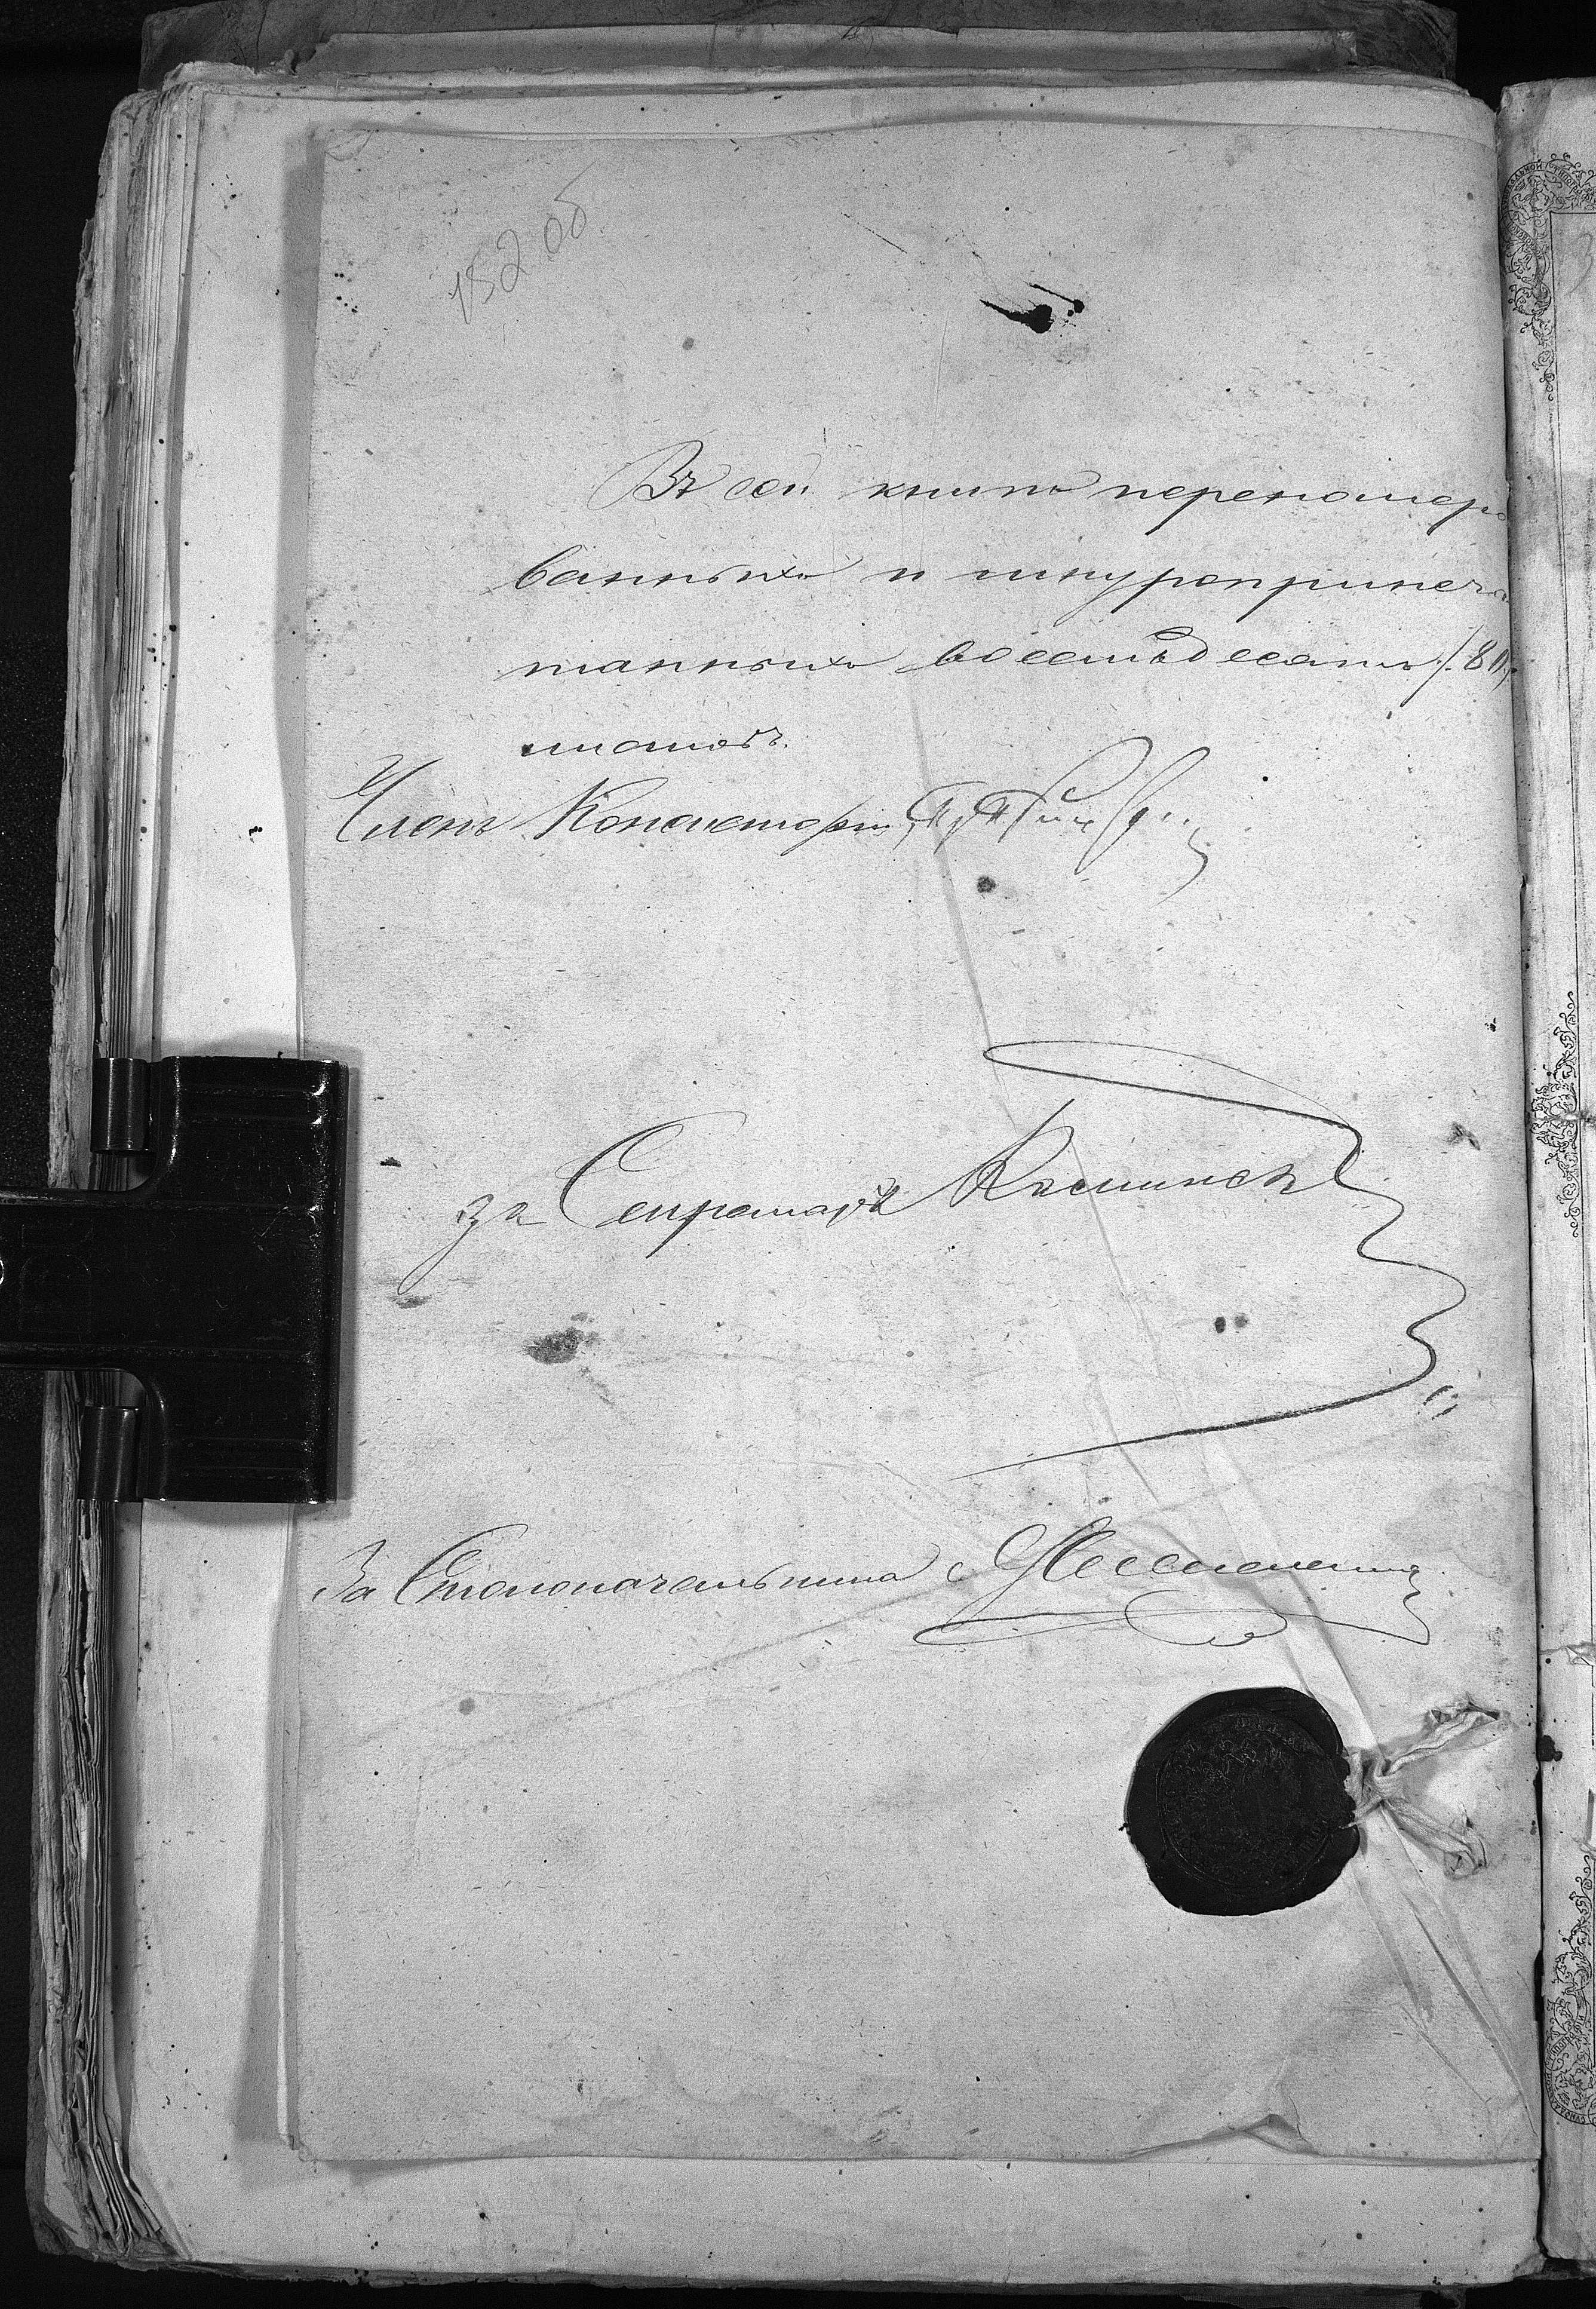 182 об
Въ сей книгѣ перенумеро
ванныхъ и шнуроприпеча
танныхъ восемьдесятъ /80/
листовъ.
Членъ Консисторіи
За Секретаря
За Столоначальника